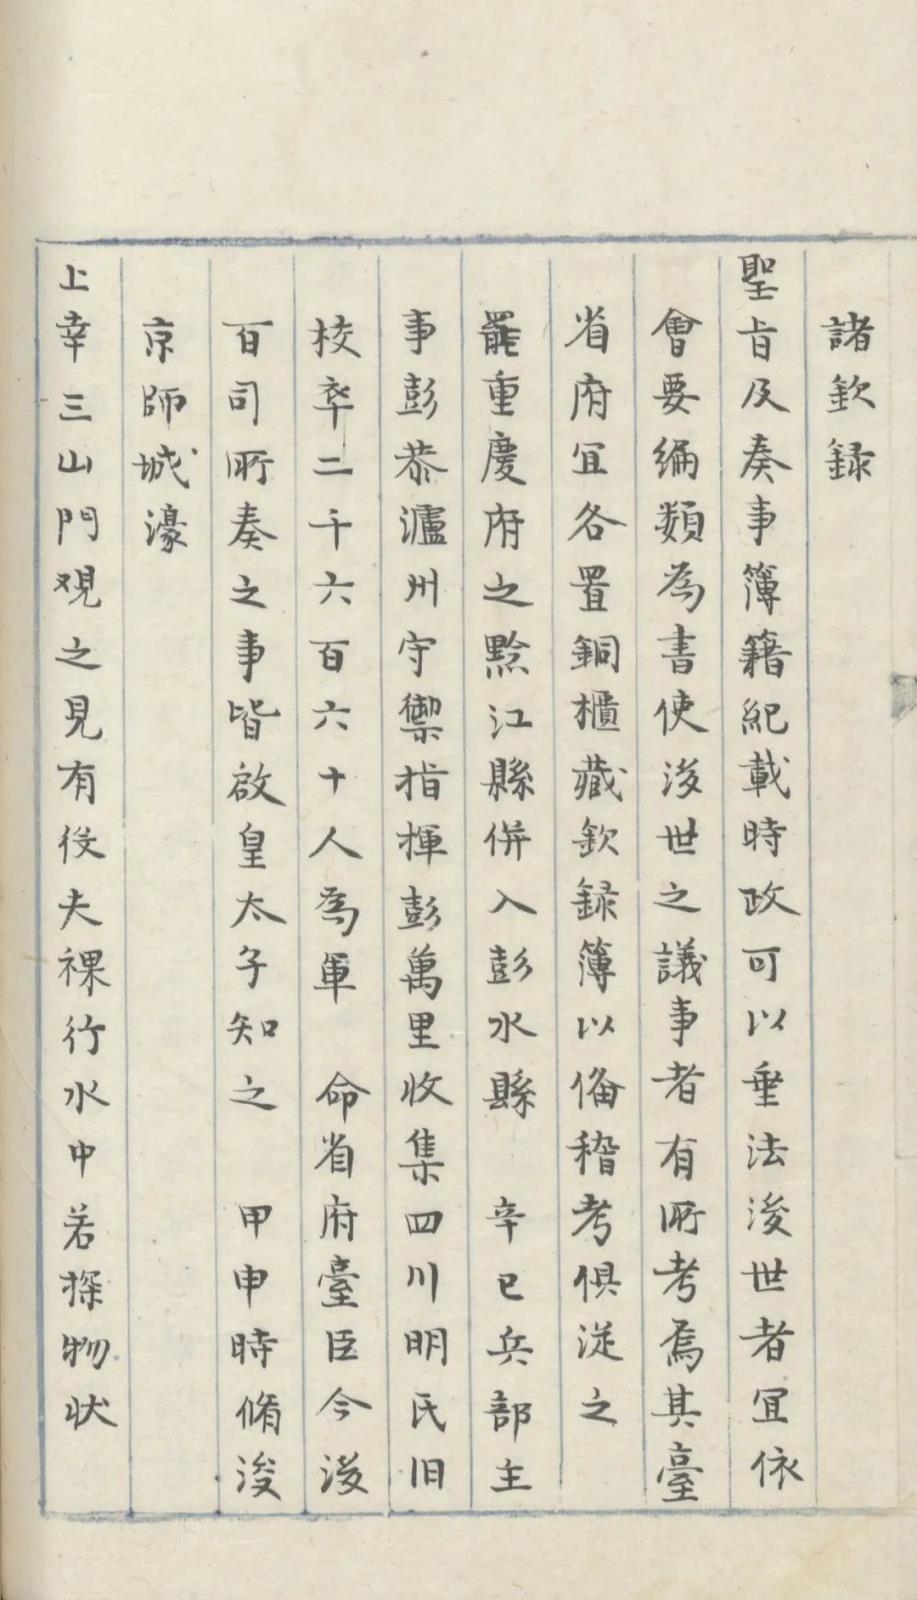 諸欽録
聖旨及奏事簿籍紀載時政可以垂法後世者宜依
會要編類為書使後世之議事者有所考焉其臺
省府宜各置銅櫃藏欽録簿以備稽考俱從之
罷重慶府之黔江縣併入彭水縣　辛巳兵部主
事彭恭瀘州守禦指揮彭萬里收集四川明氏旧
校卒二千六百六十人為軍　命省府臺臣今後
百司所奏之事皆啟皇太子知之　甲申時脩浚
京師城濠
上幸三山門观之見有役夫裸行水中若探物状